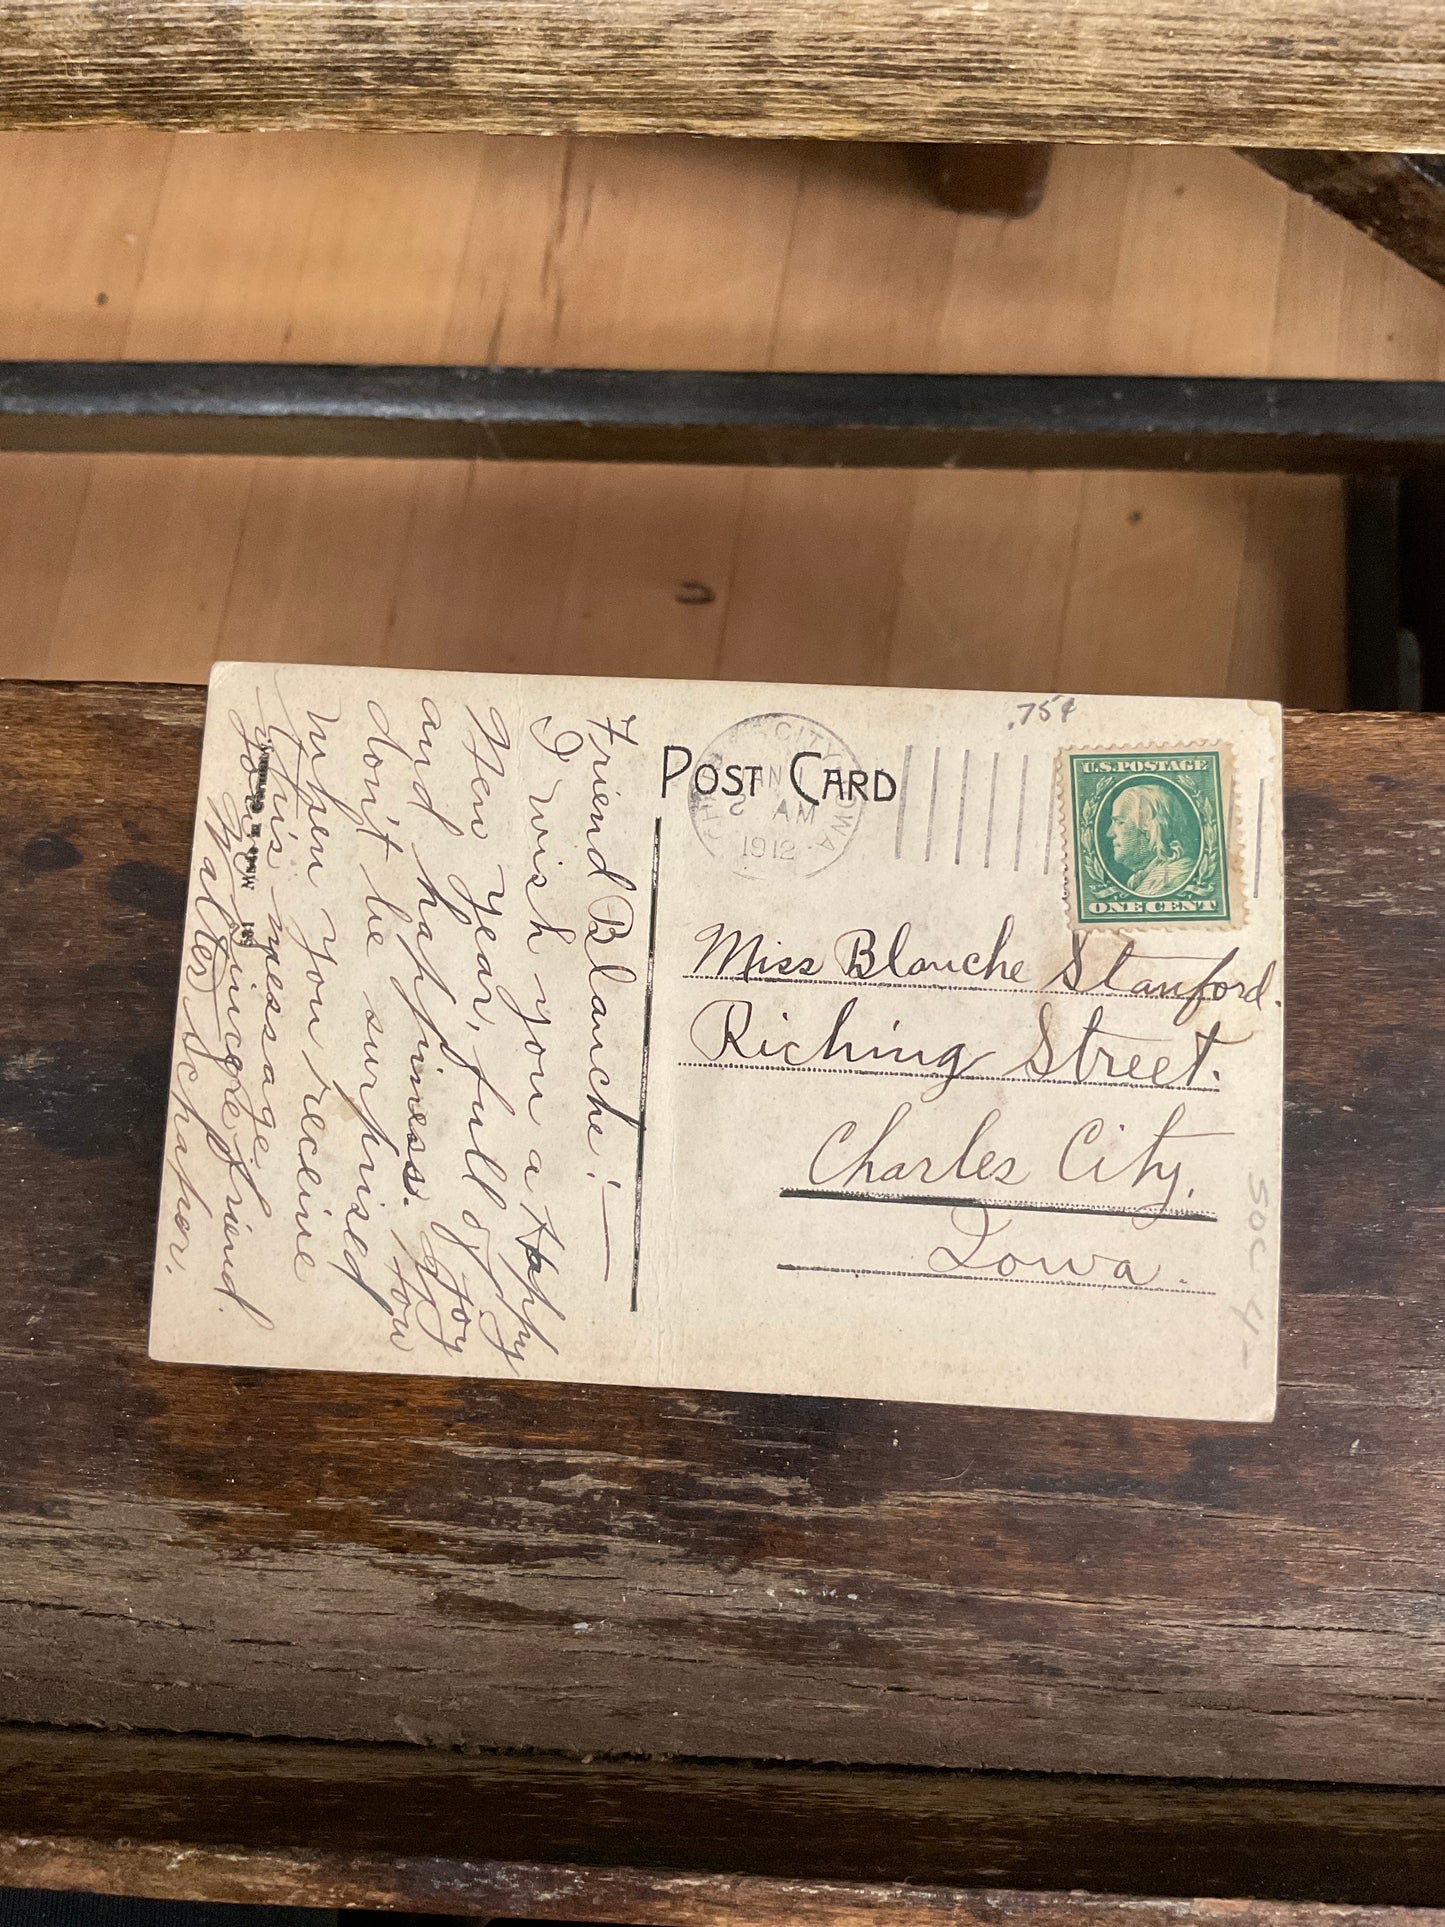 Friend Blanche! —
I wish you a Happy
New Year, full of joy
and happiness. Now
don't be surprised
when you receive
this message.
Your Sincere friend.
Walter Schaper.
181 Made in Germany
POST CARD
CITY IOWA
JAN 1
AM
1912
.75¢
U.S. POSTAGE
ONE CENT
Miss Blanche Stanford.
Riching Street.
Charles City,
Iowa.
SOC 4-